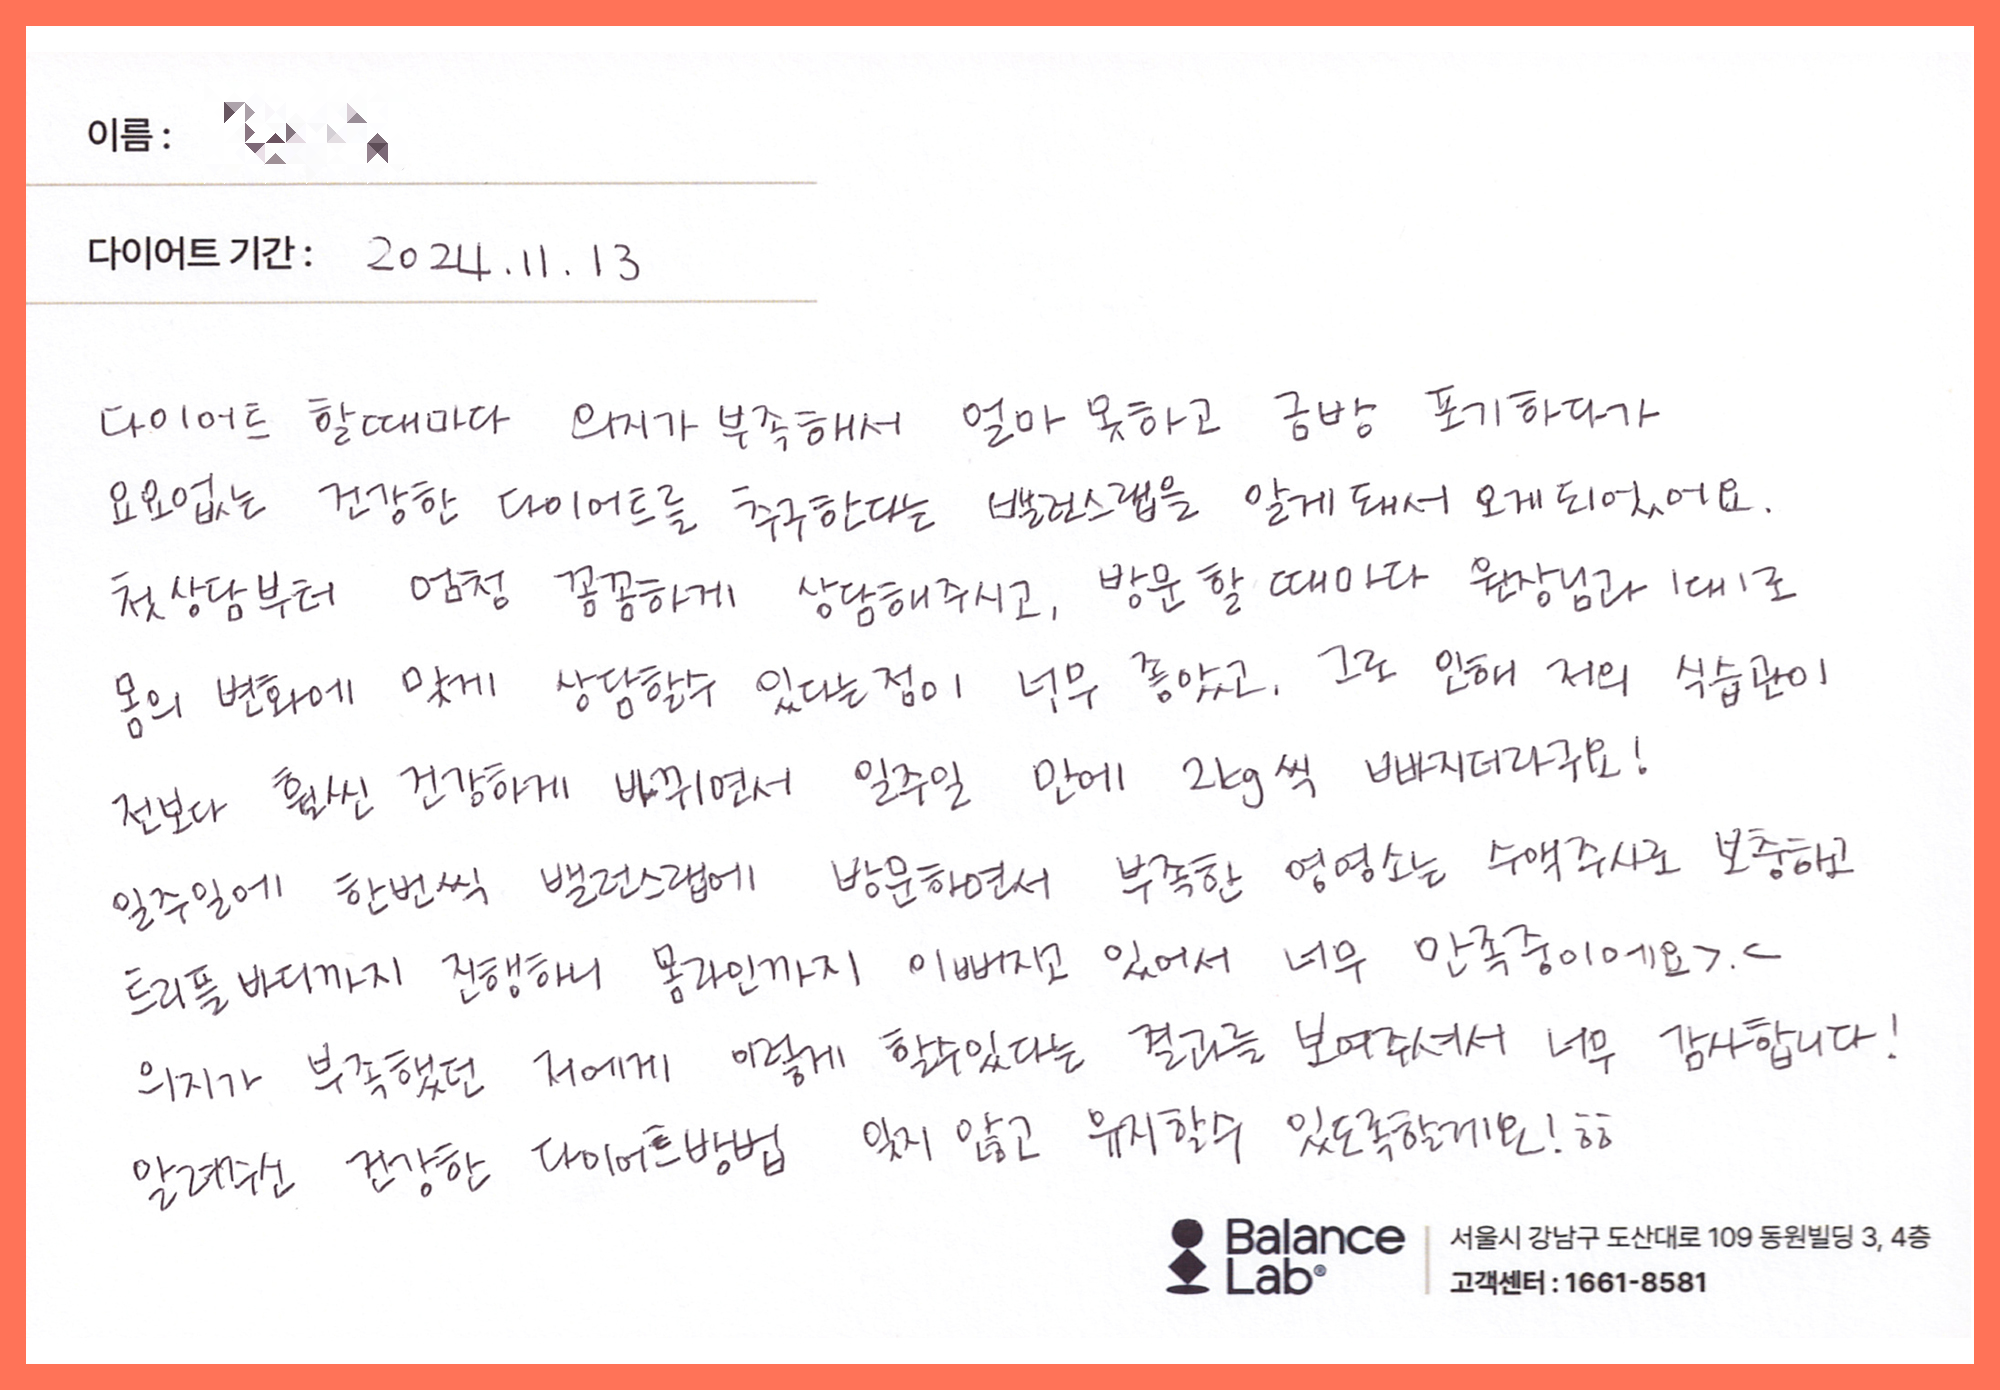 이름 :
다이어트 기간 : 2024.11.13
다이어트 할때마다 의지가 부족해서 얼마 못하고 금방 포기하다가
요요없는 건강한 다이어트를 추구한다는 밸런스랩을 알게돼서 오게되었어요.
첫상담부터 엄청 꼼꼼하게 상담해주시고, 방문 할 때마다 원장님과 1대1로
몸의 변화에 맞게 상담할수 있다는점이 너무 좋았고, 그로 인해 저의 식습관이
전보다 훨씬 건강하게 바뀌면서 일주일 만에 2kg씩 빠지더라구요!
일주일에 한번씩 밸런스랩에 방문하면서 부족한 영영소는 수액주사로 보충하고
트리플바디까지 진행하니 몸라인까지 이뻐지고 있어서 너무 만족중이에요>.<
의지가 부족했던 저에게 이렇게 할수있다는 결과를 보여주셔서 너무 감사합니다!
알려주신 건강한 다이어트방법 잊지 않고 유지할수 있도록할게요! ㅎㅎ
Balance
Lab®
서울시 강남구 도산대로 109 동원빌딩 3, 4층
고객센터 : 1661-8581